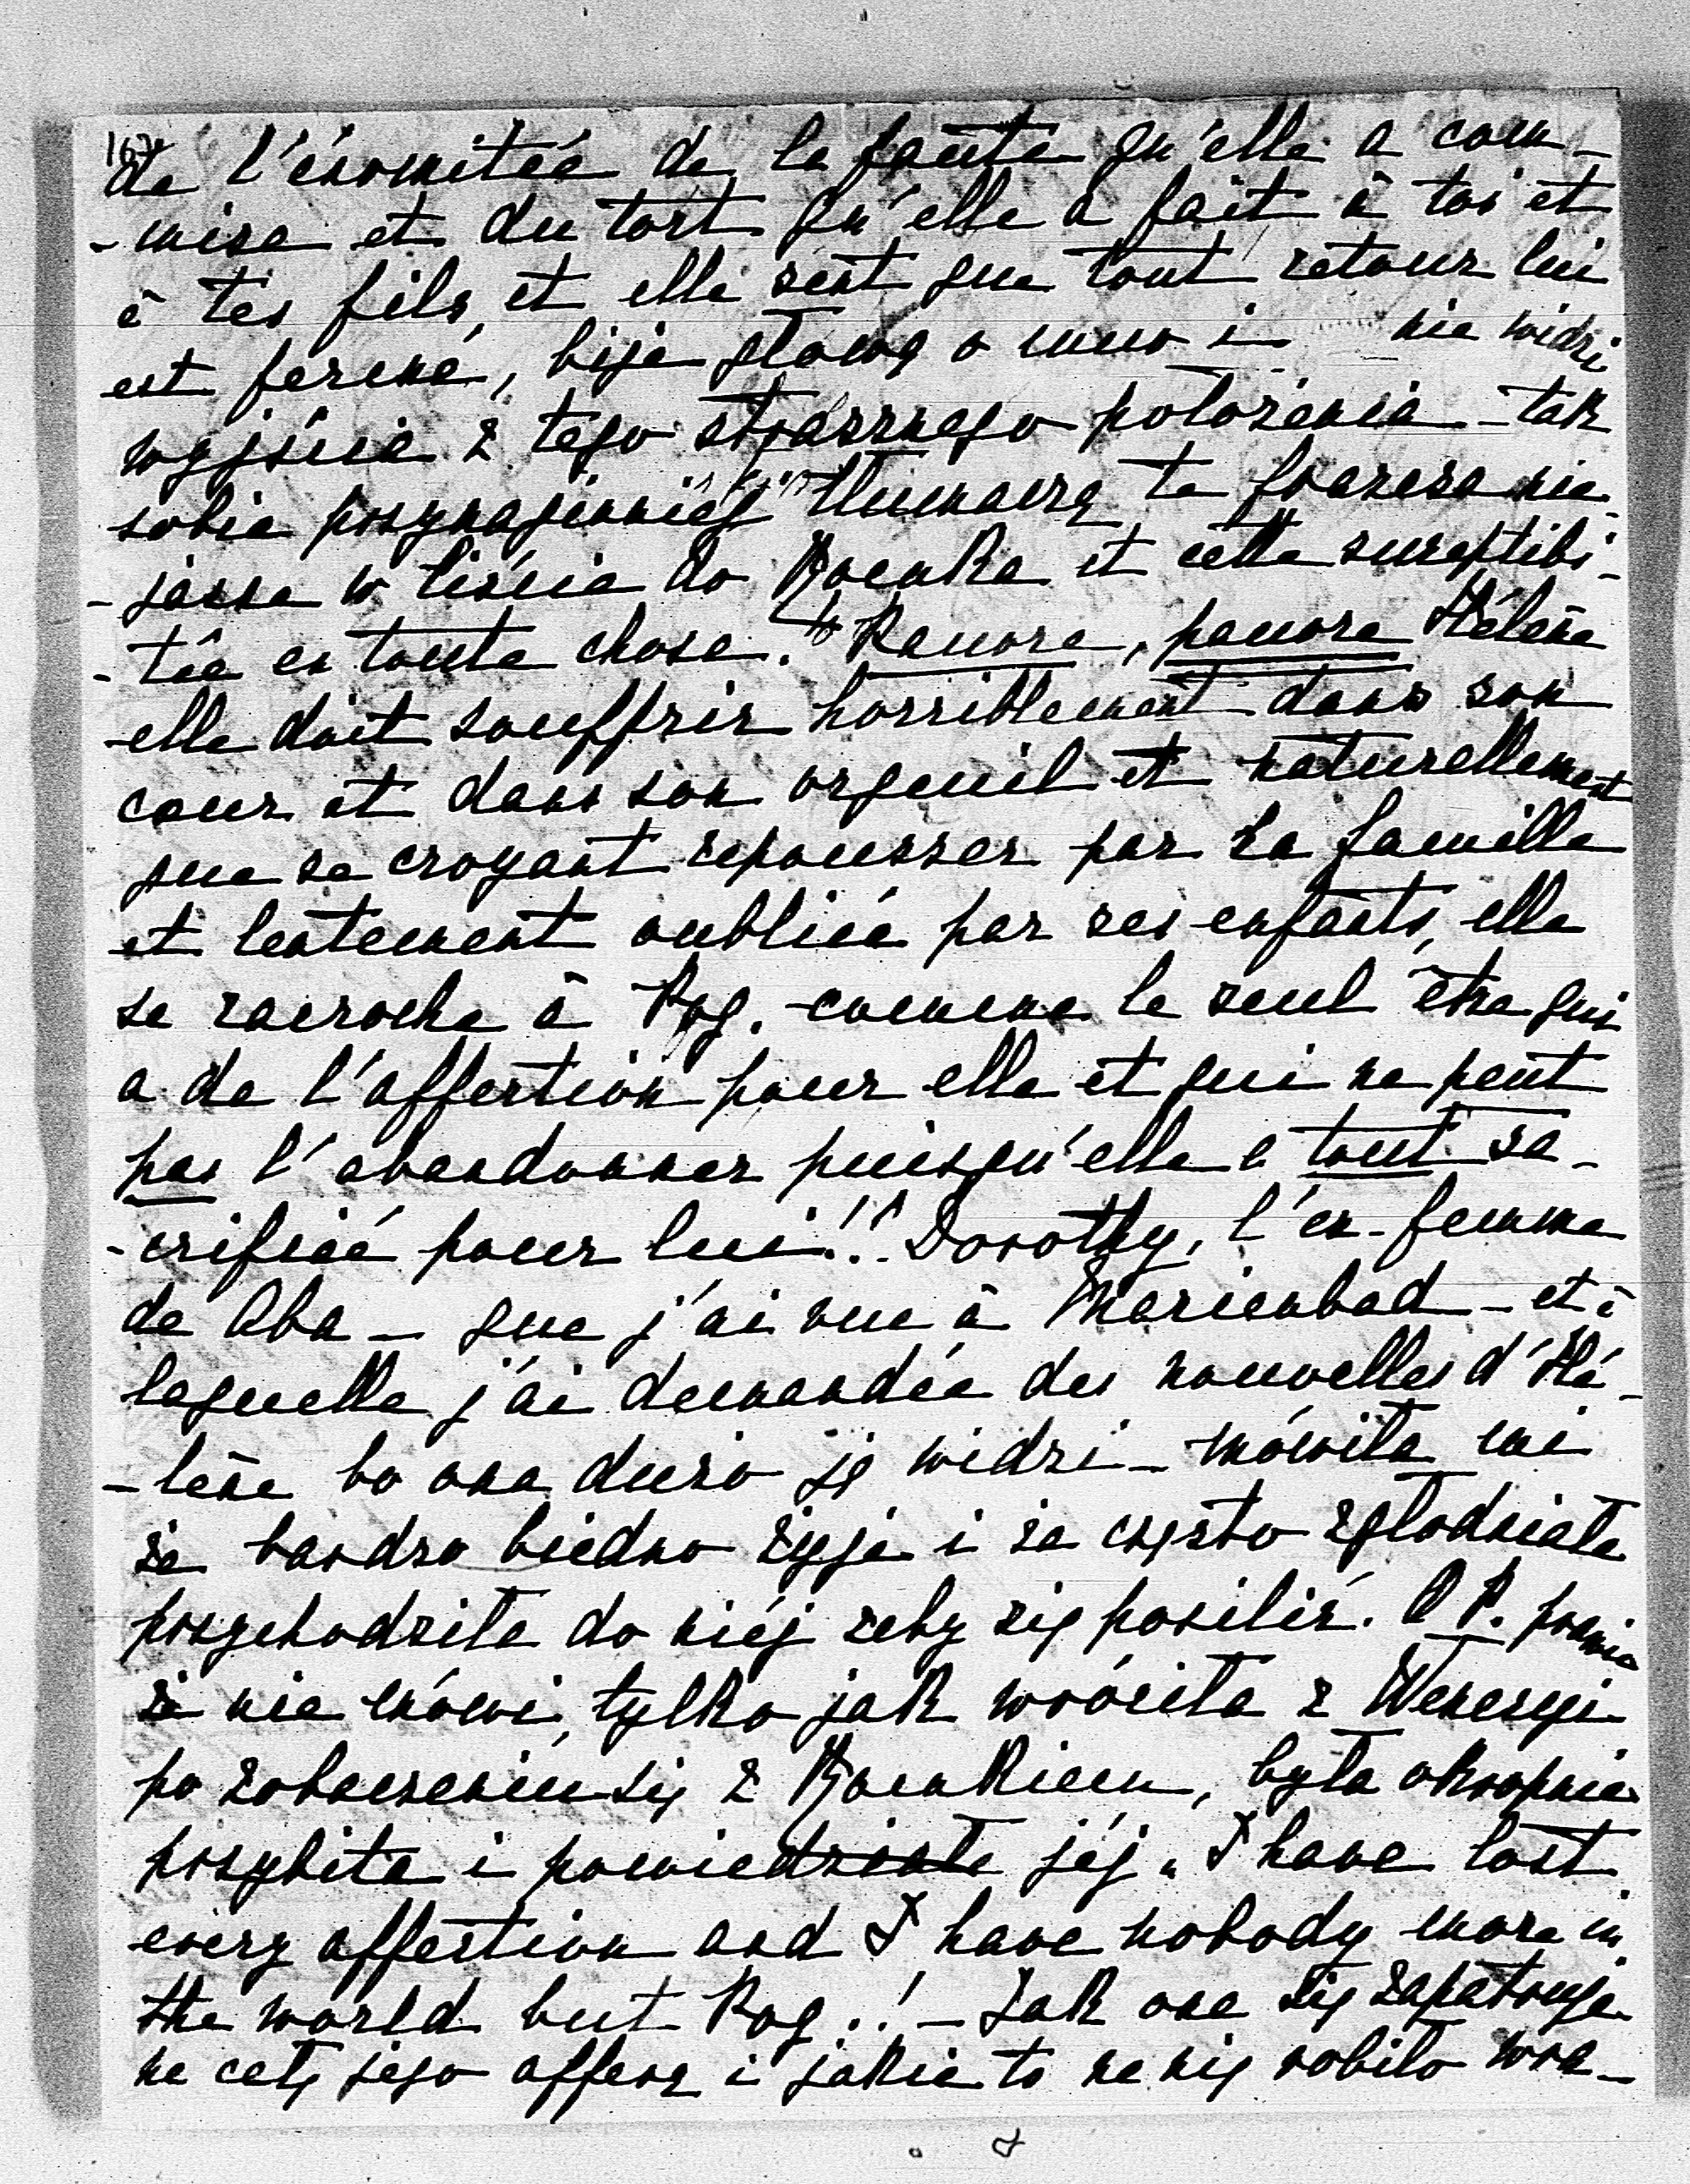 de l'énormitée de la faute qu'elle a com-
-mise et du tort qu'elle a fait à toi et
à tes fils, et elle sent que tout retour lui
est fermé, bije głową o mur i nie widzi
wyjścia z tego strasznego położenia - tak
sobie przynajmniej tłumaczę te frazesa nie-
-jasne w liście do Romka et cette suseptibi-
-tée en toute chose. Pauvre, pauvre Hélène
elle doit souffrir horriblement dans son
cœur et dans son orgeuil et naturellement
que se croyant repousser par sa famille
et lentement oubliée par ses enfants, elle
se racroche à Rog. comme le seul être qui
a de l'affection pour elle et qui ne peut
pas l'abandonner puisqu'elle a tout sa-
-crifiée pour lui!! Dorothy, l'ex-femme
de Aba - que j'ai vue à Marienbad - et à
laquelle j'ai demandée des nouvelles d'Hé-
-lène bo ona dużo ją widzi - mówiła mi
że bardzo biedno żyje i że często zgłodniała
przychodziła do niéj żeby się posilić. O P. prawie
że nie mówi, tylko jak wróciła z Wenecyi
po zobaczeniu się z Romkiem, była okropnie
przybita i powiedziała jéj „I have lost
every affection and I have nobody more in
the world but Rog..! - Jak ona się zapatruje
na całą jego afferę i jakie to na nią robiło wra-